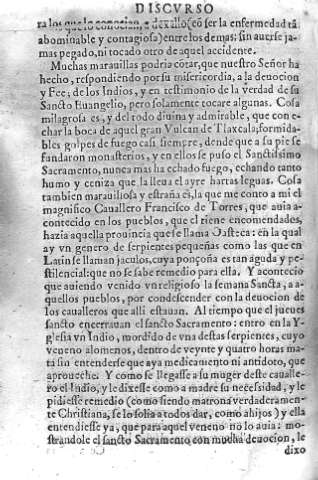 DISCVRSO
ra los que lo conocian, a dexallo (cõ ser la enfermedad tã
abominable y contagiosa) entre los demas: sin auerse ja-
mas pegado, ni tocado otro de aquel accidente.
Muchas marauillas podria cõtar, que nuestro Señor ha
hecho, respondiendo por su misericordia, a la deuocion
y Fee, de los Indios, y en testimonio de la verdad de su
Sancto Euangelio, pero solamente tocare algunas. Cosa
milagrosa es, y del todo diuina y admirable, que con e-
char la boca de aquel gran Vulcan de Tlaxcala, formida-
bles golpes de fuego casi siempre, dende que a su pie se
fundaron monasterios, y en ellos se puso el Sanctissimo
Sacramento, nunca mas ha echado fuego, echando tanto
humo y ceniza que la lleua el ayre hartas leguas. Cosa
tambien marauillosa y estraña es, la que me conto a mi el
magnifico Cauallero Francisco de Torres, que auia a-
contecido en los pueblos, que el tiene encomendados,
hazia aquella prouincia que se llama Oasteca: en la qual
ay vn genero de serpientes pequeñas como las que en
Latin se llaman jaculos, cuya ponçoña es tan aguda y pe-
stilencial: que no se sabe remedio para ella. Y acontecio
que auiendo venido vn religioso la semana Sancta, a a-
quellos pueblos, por condescender con la deuocion de
los caualleros que alli estauan. Al tiempo que el jueues
sancto encerrauan el sancto Sacramento: entro en la Y-
glesia vn Indio, mordido de vna destas serpientes, cuyo
veneno alomenos, dentro de veynte y quatro horas ma-
ta sin entenderse que aya medicamento ni antidoto, que
aproueche. Y como se llegasse a su muger deste caualle-
ro el Indio, y le dixesse como a madre su necessidad, y le
pidiesse remedio (como siendo matrona verdaderamen-
te Christiana, se lo solia a todos dar, como a hijos) y ella
entendiesse ya, que para aquel veneno no lo auia: mo-
strandole el sancto Sacramento con mucha deuocion, le
dixo